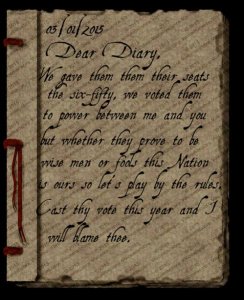 03/01/2015
Dear Diary,
We gave them them their seats
the six-fifty, we voted them
to power between me and you
but whether they prove to be
wise men or fools this Nation
is ours so let's play by the rules.
Cast thy vote this year and I
will blame thee.